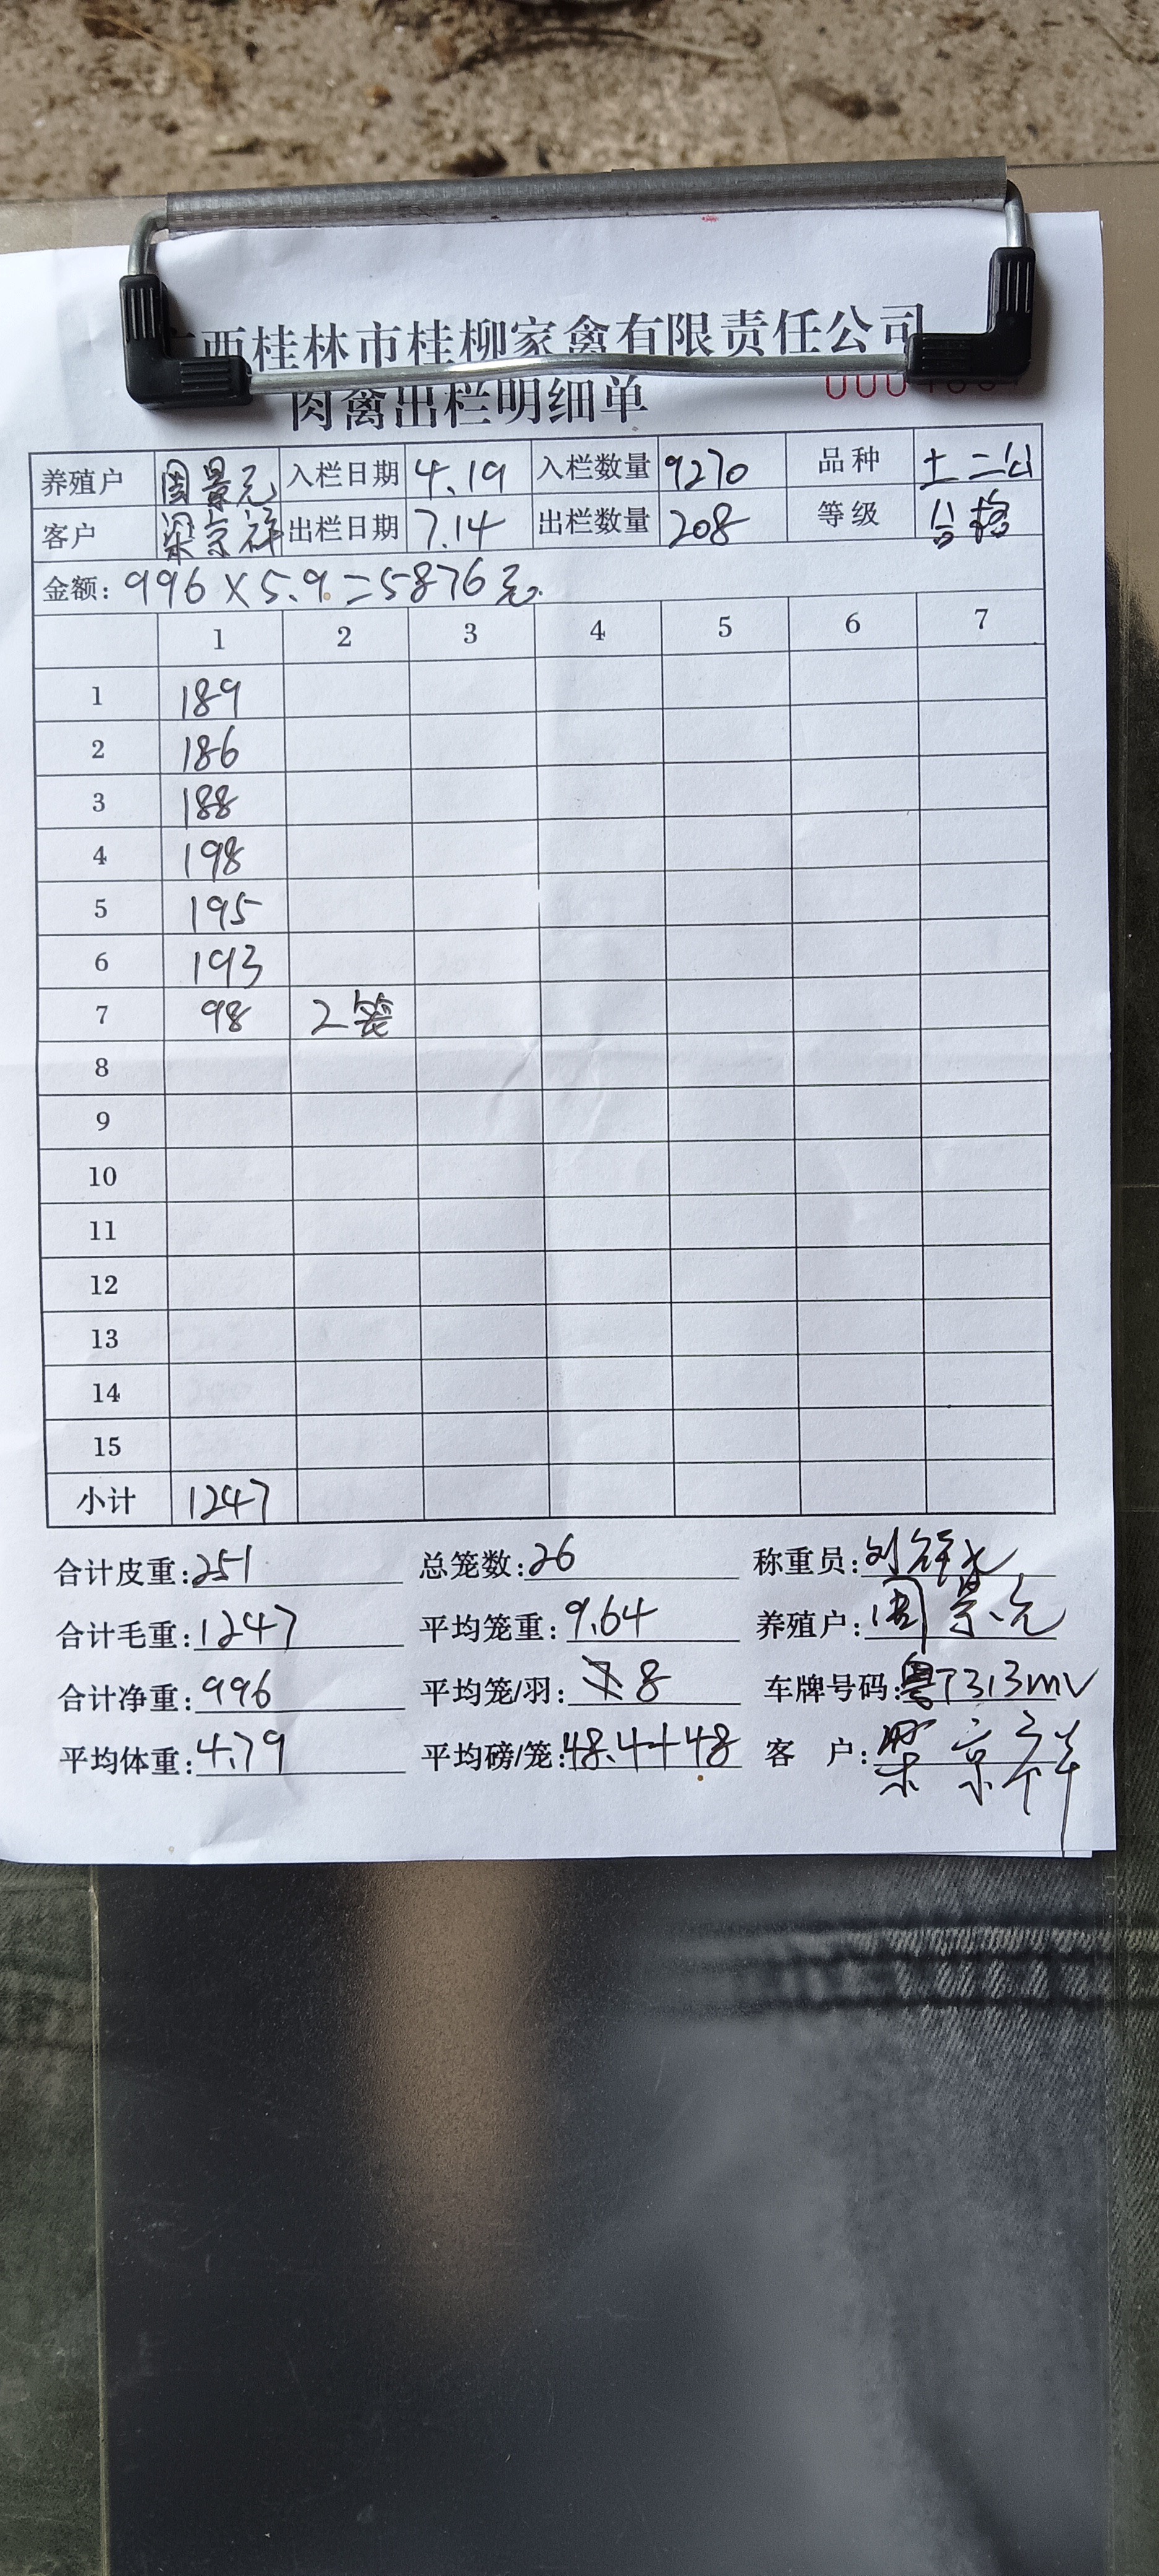 广西桂林市桂柳家禽有限责任公司
肉禽出栏明细单
养殖户 周景元 入栏日期 4.19 入栏数量 9270 品种 土二公
客户 梁京祥 出栏日期 7.14 出栏数量 208 等级 合格
金额: 996×5.9=5876元.
1 2 3 4 5 6 7
1 189
2 186
3 188
4 198
5 195
6 193
7 98 2笼
8
9
10
11
12
13
14
15
小计 1247
合计皮重: 251 总笼数: 26 称重员:
合计毛重: 1247 平均笼重: 9.64 养殖户: 周景元
合计净重: 996 平均笼/羽: 8 车牌号码: 粤T313mV
平均体重: 4.79 平均磅/笼: 48.4+48 客 户: 梁京祥